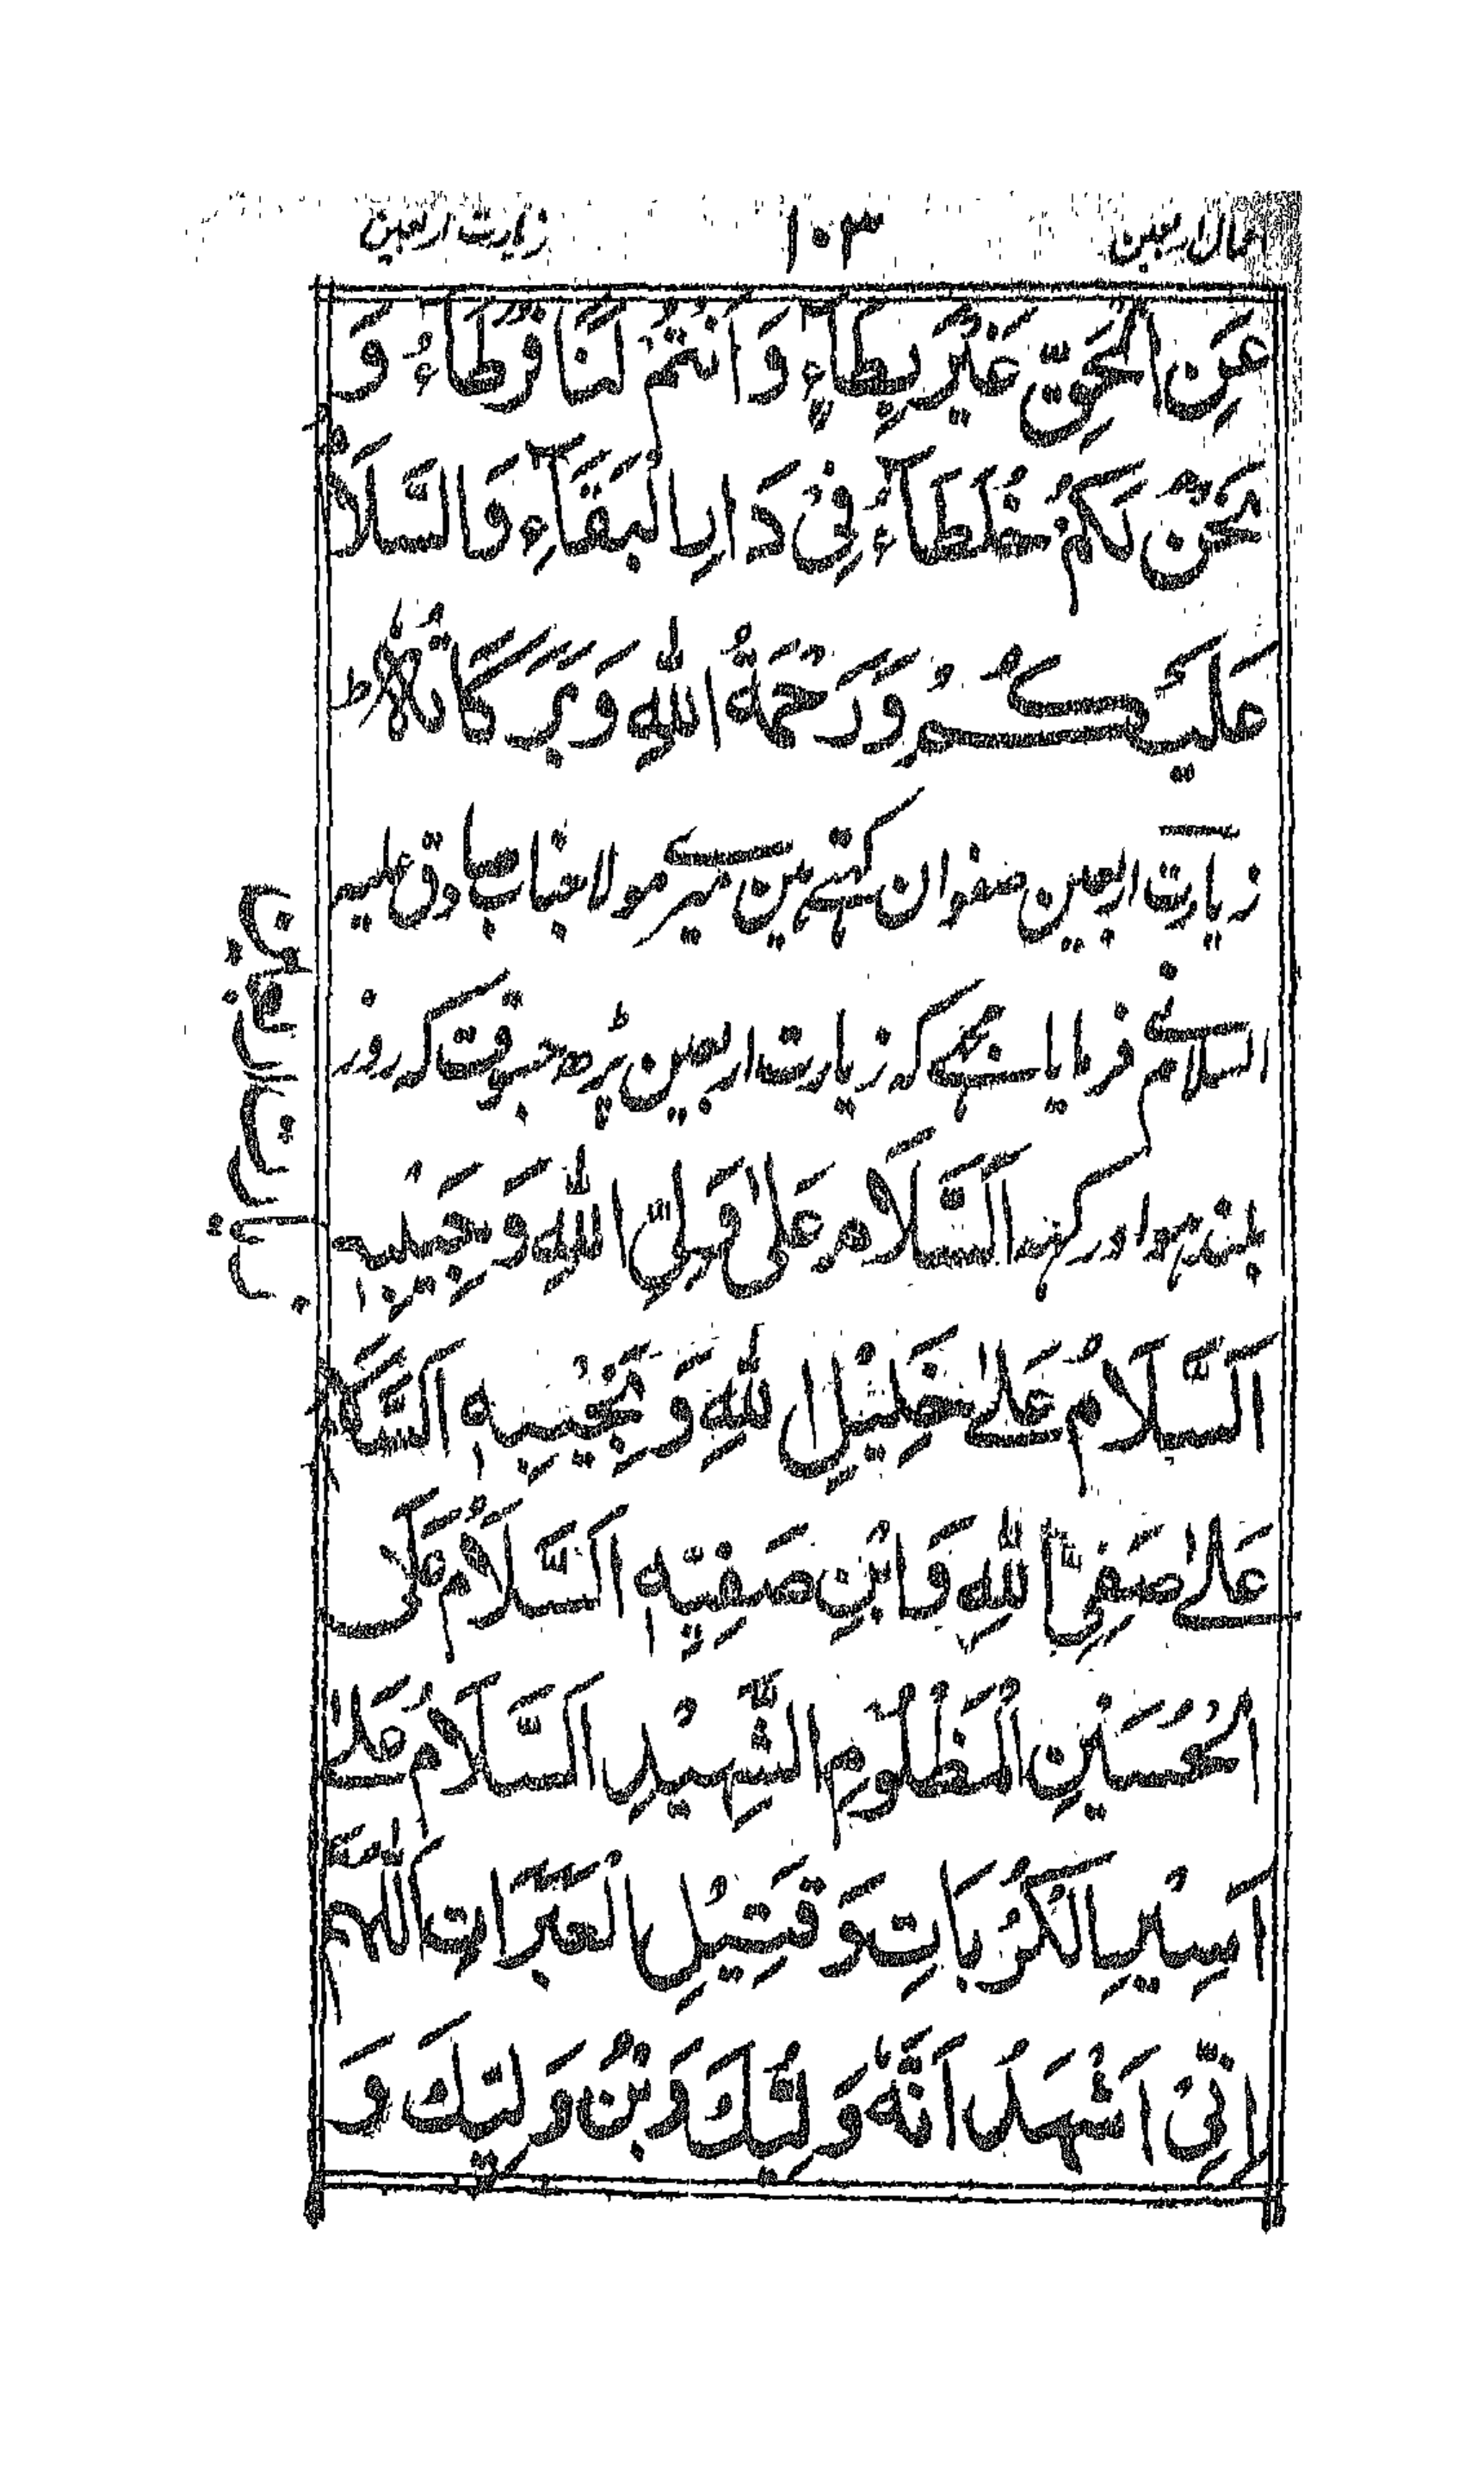 اعمال اربعین ۱۰۳ زیارت اربعین
عَنِ الْحَقِّ غَيْرَ بِطَآءٍ وَ اَنْتُمْ لَنَا فُرَطَآءُ وَ
نَحْنُ لَكُمْ خُلَطَآءُ فِیْ دَارِ الْبَقَآءِ وَ السَّلَامُ
عَلَيْكُمْ وَ رَحْمَةُ اللّٰهِ وَ بَرَكَاتُهٗ ط
زیارت اربعین صفوان کہتے ہین میرے مولا جناب صادق علیہ
السلام نے فرمایا مجھسے کہ زیارت اربعین پڑھ جسوقت کہ روز
بلند ہوا اور کہہ اَلسَّلَامُ عَلٰى وَلِیِّ اللّٰهِ وَ حَبِيْبِهٖ
اَلسَّلَامُ عَلٰے خَلِيْلِ اللّٰهِ وَ نَجِيْبِهٖ اَلسَّلَامُ
عَلٰے صَفِیِّ اللّٰهِ وَ ابْنِ صَفِيِّهٖ اَلسَّلَامُ عَلَى
الْحُسَيْنِ الْمَظْلُوْمِ الشَّهِيْدِ اَلسَّلَامُ عَلٰے
اَسِيْرِ الْكُرُبَاتِ وَ قَتِيْلِ الْعَبَرَاتِ اَللّٰهُمَّ
اِنِّیْ اَشْهَدُ اَنَّهٗ وَلِيُّكَ وَ بْنُ وَلِيِّكَ وَ